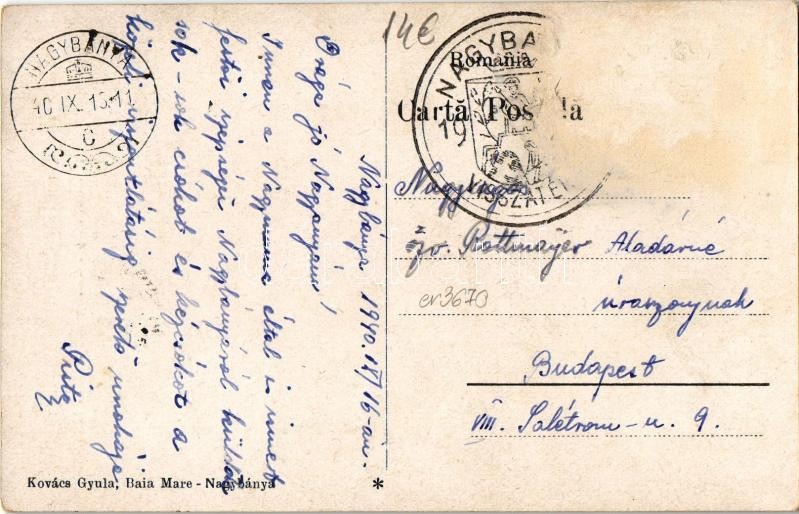 14€
NAGYBÁNYA
40.IX.16.11
C
NAGYBÁ
19
VISSZATÉ
România
Carta Pos la
Nagybánya 1940. IX/16-án.
Drága jó Nagyanyám!
Innen a Nagymama által is ismert
festői szépségű Nagybányáról küldök
sok-sok csókot és kézcsókot a
viszontlátásig szerető unokája
Pista
Nagyságos
özv. Rottmayer Aladárné
úrasszonynak
Budapest
VIII. Salétrom-u. 9.
ev3670
Kovács Gyula, Baia Mare - Nagybánya
*